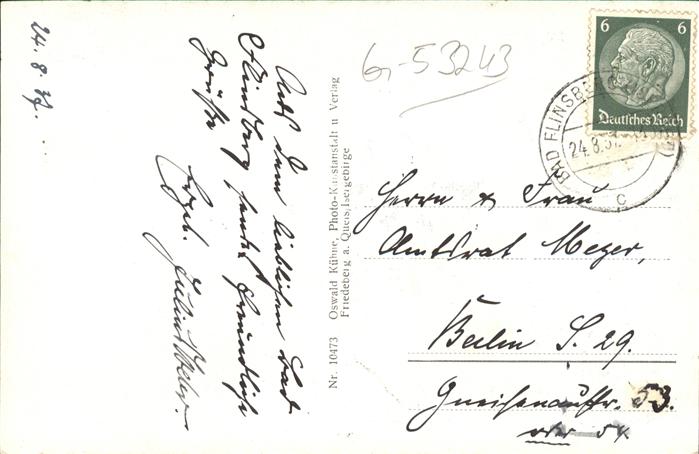 24. 8. 37.
Aus dem lieblichen Bad
Flinsberg sendet freundliche
Grüße
ergeb.
G-53243
Nr. 10473 Oswald Kühne, Photo-Kunstanstalt u Verlag
Friedeberg a. Queis, Isergebirge
6 6
Deutsches Reich
BAD FLINSBERG
24.8.37
c
Herrn & Frau
Amtsrat Meyer,
Berlin S. 29.
Gneisenaustr. 53.
oder 54